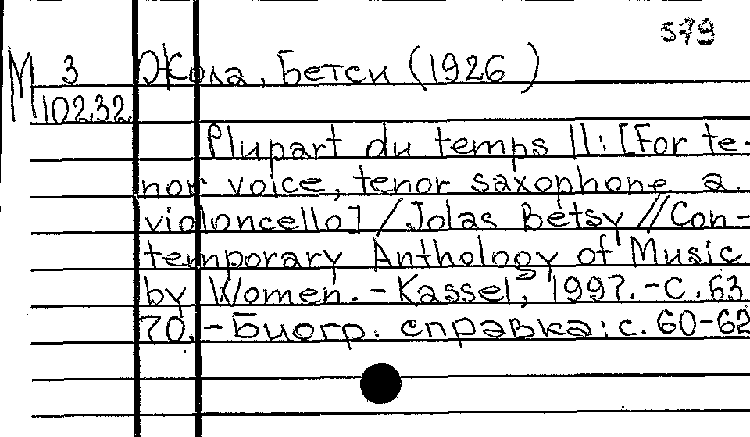 579
М 3 Жола, Бетси (1926 )
10232
Plupart du temps II: [For te-
nor voice, tenor saxophone a.
violoncello] / Jolas Betsy // Con-
temporary Anthology of Music
by Women. - Kassel, 1997. - С. 63
70. - Биогр. справка: с. 60-62